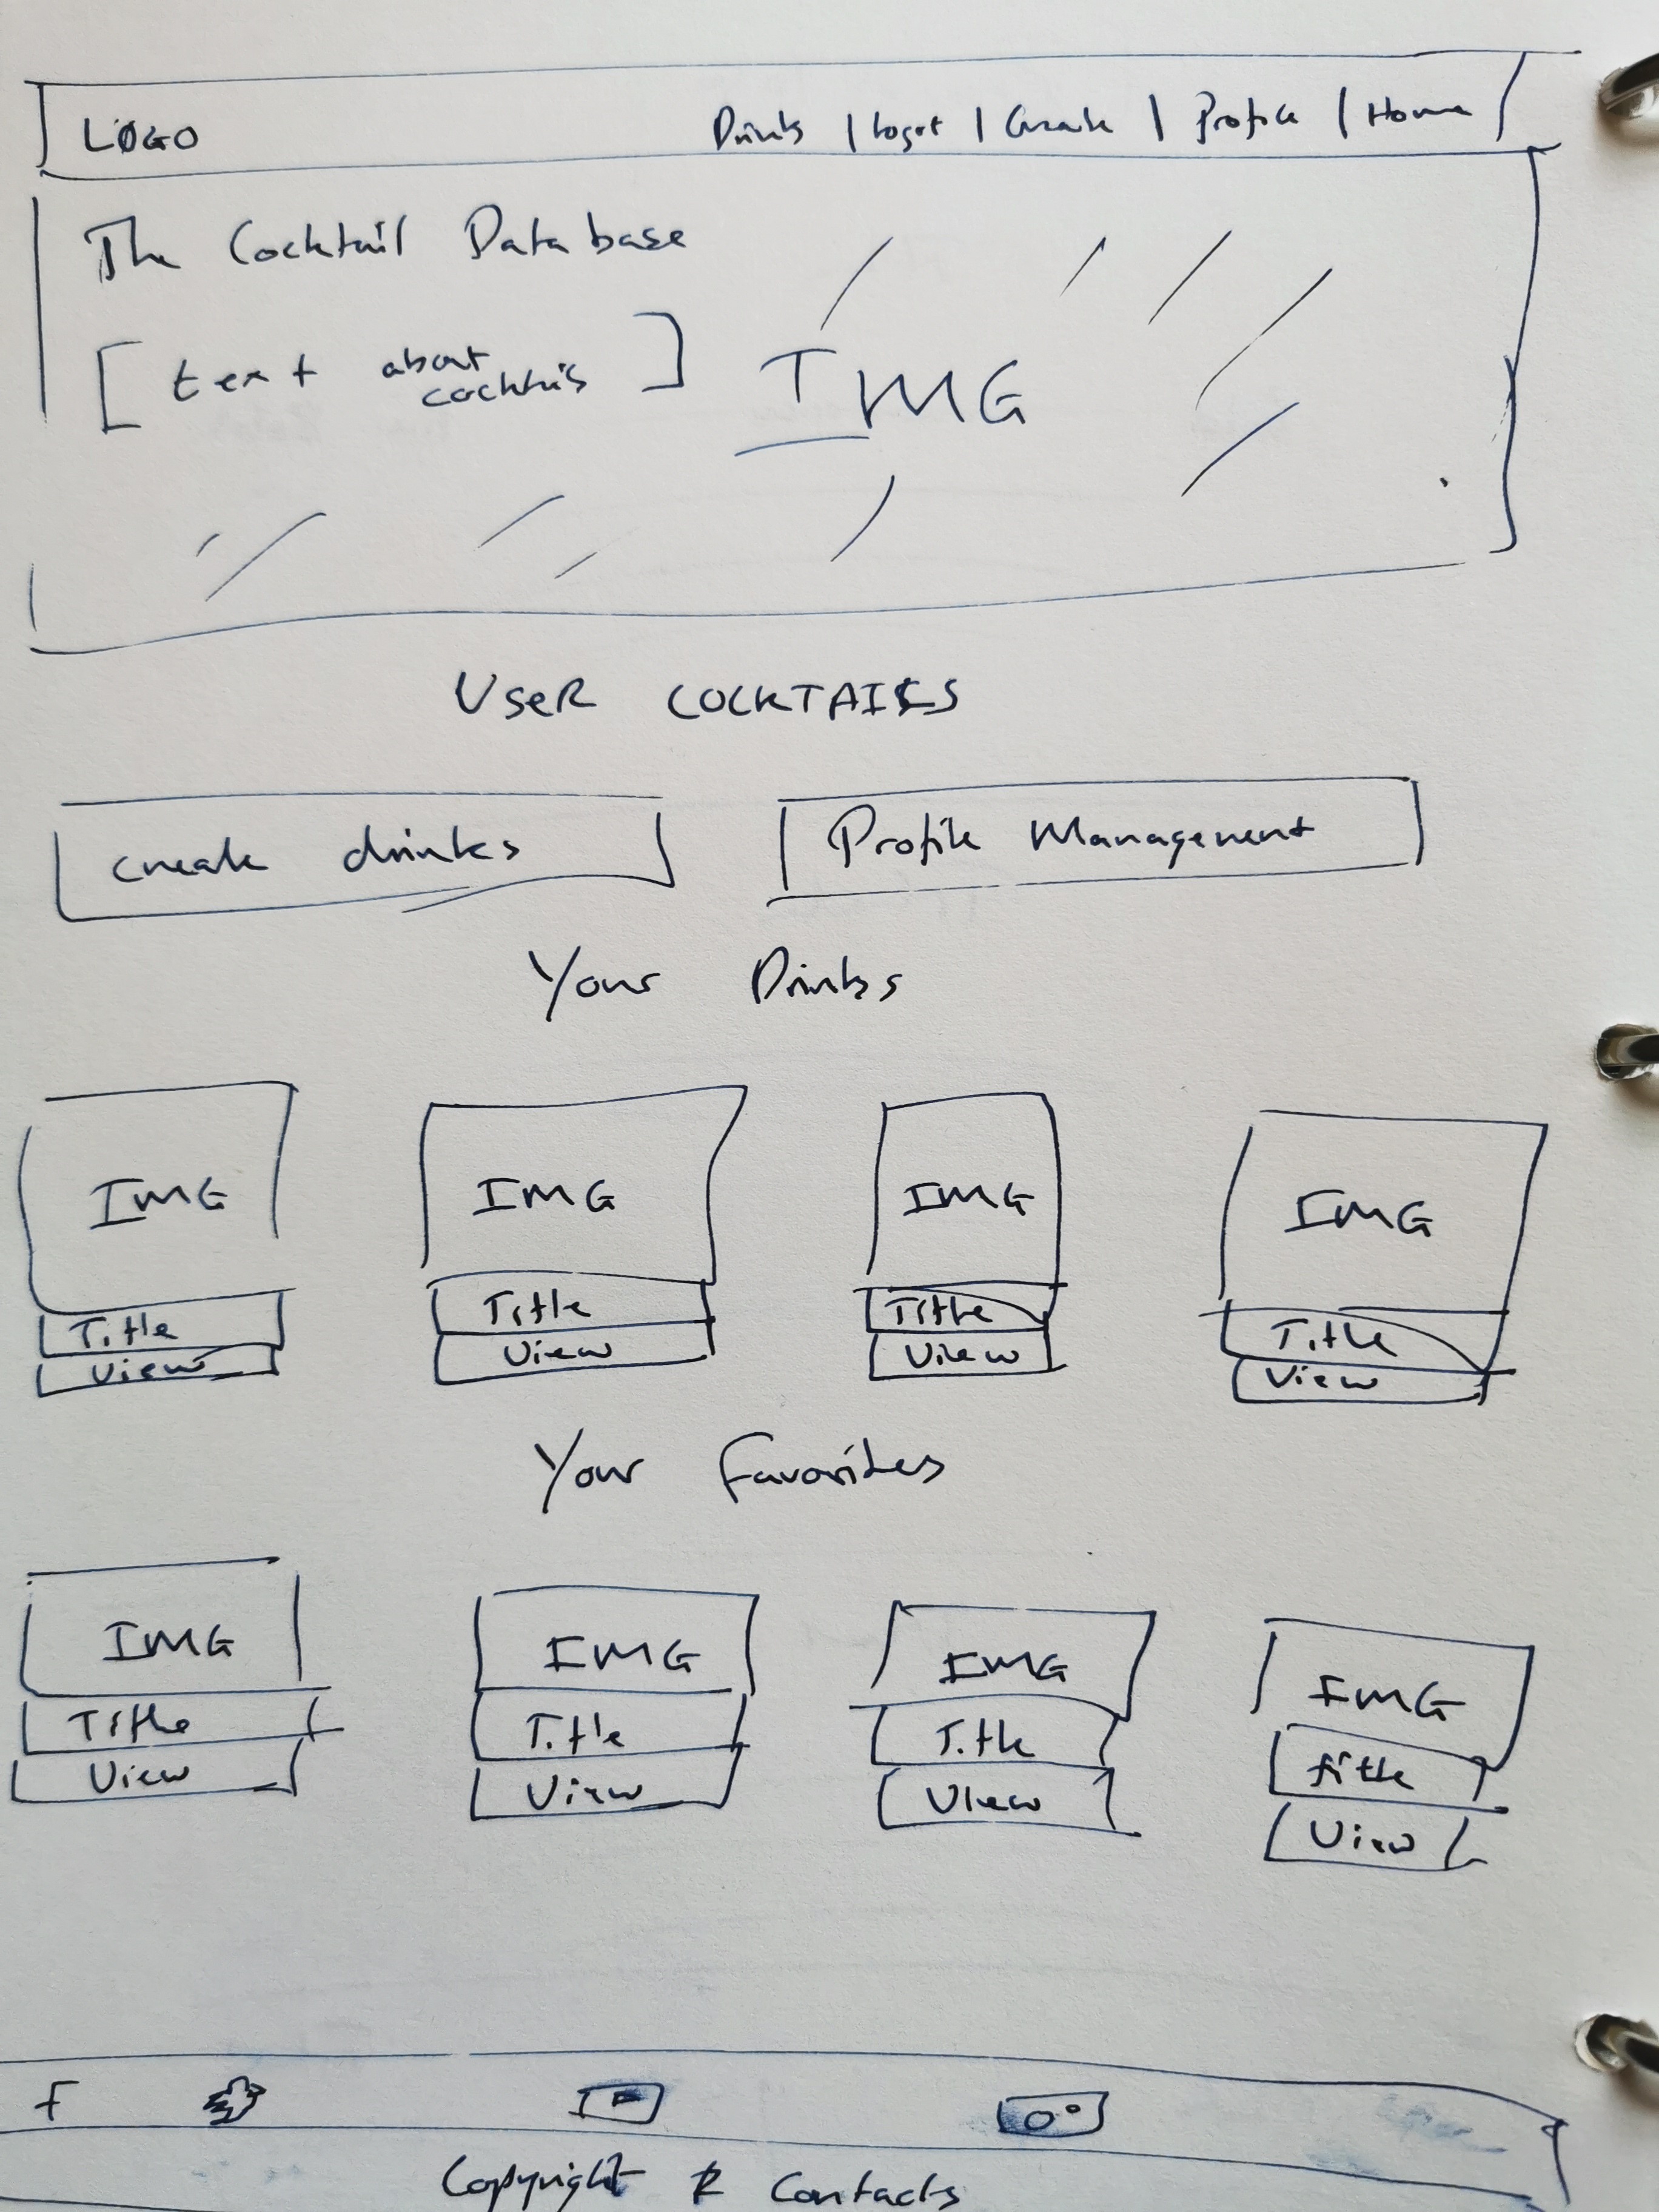 LOGO Drinks | Logout | Create | Profile | Home
The Cocktail Database
[ text about cocktails ]
IMG
USER COCKTAILS
create drinks Profile Management
Your Drinks
IMG IMG IMG IMG
Title Title Title Title
View View View View
Your Favorites
IMG IMG IMG IMG
Title Title Title title
View View View View
f
Copyright & Contacts